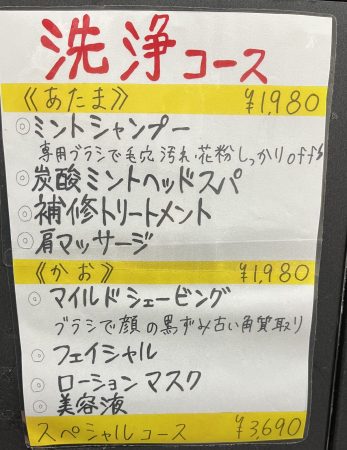 洗浄コース
《あたま》 ¥1,980
◎ミントシャンプー
専用ブラシで毛穴汚れ・花粉しっかりoff!
◎炭酸ミントヘッドスパ
◎補修トリートメント
◎肩マッサージ
《かお》 ¥1,980
◎マイルドシェービング
ブラシで顔の黒ずみ古い角質取り
◎フェイシャル
◎ローションマスク
◎美容液
スペシャルコース ¥3,690